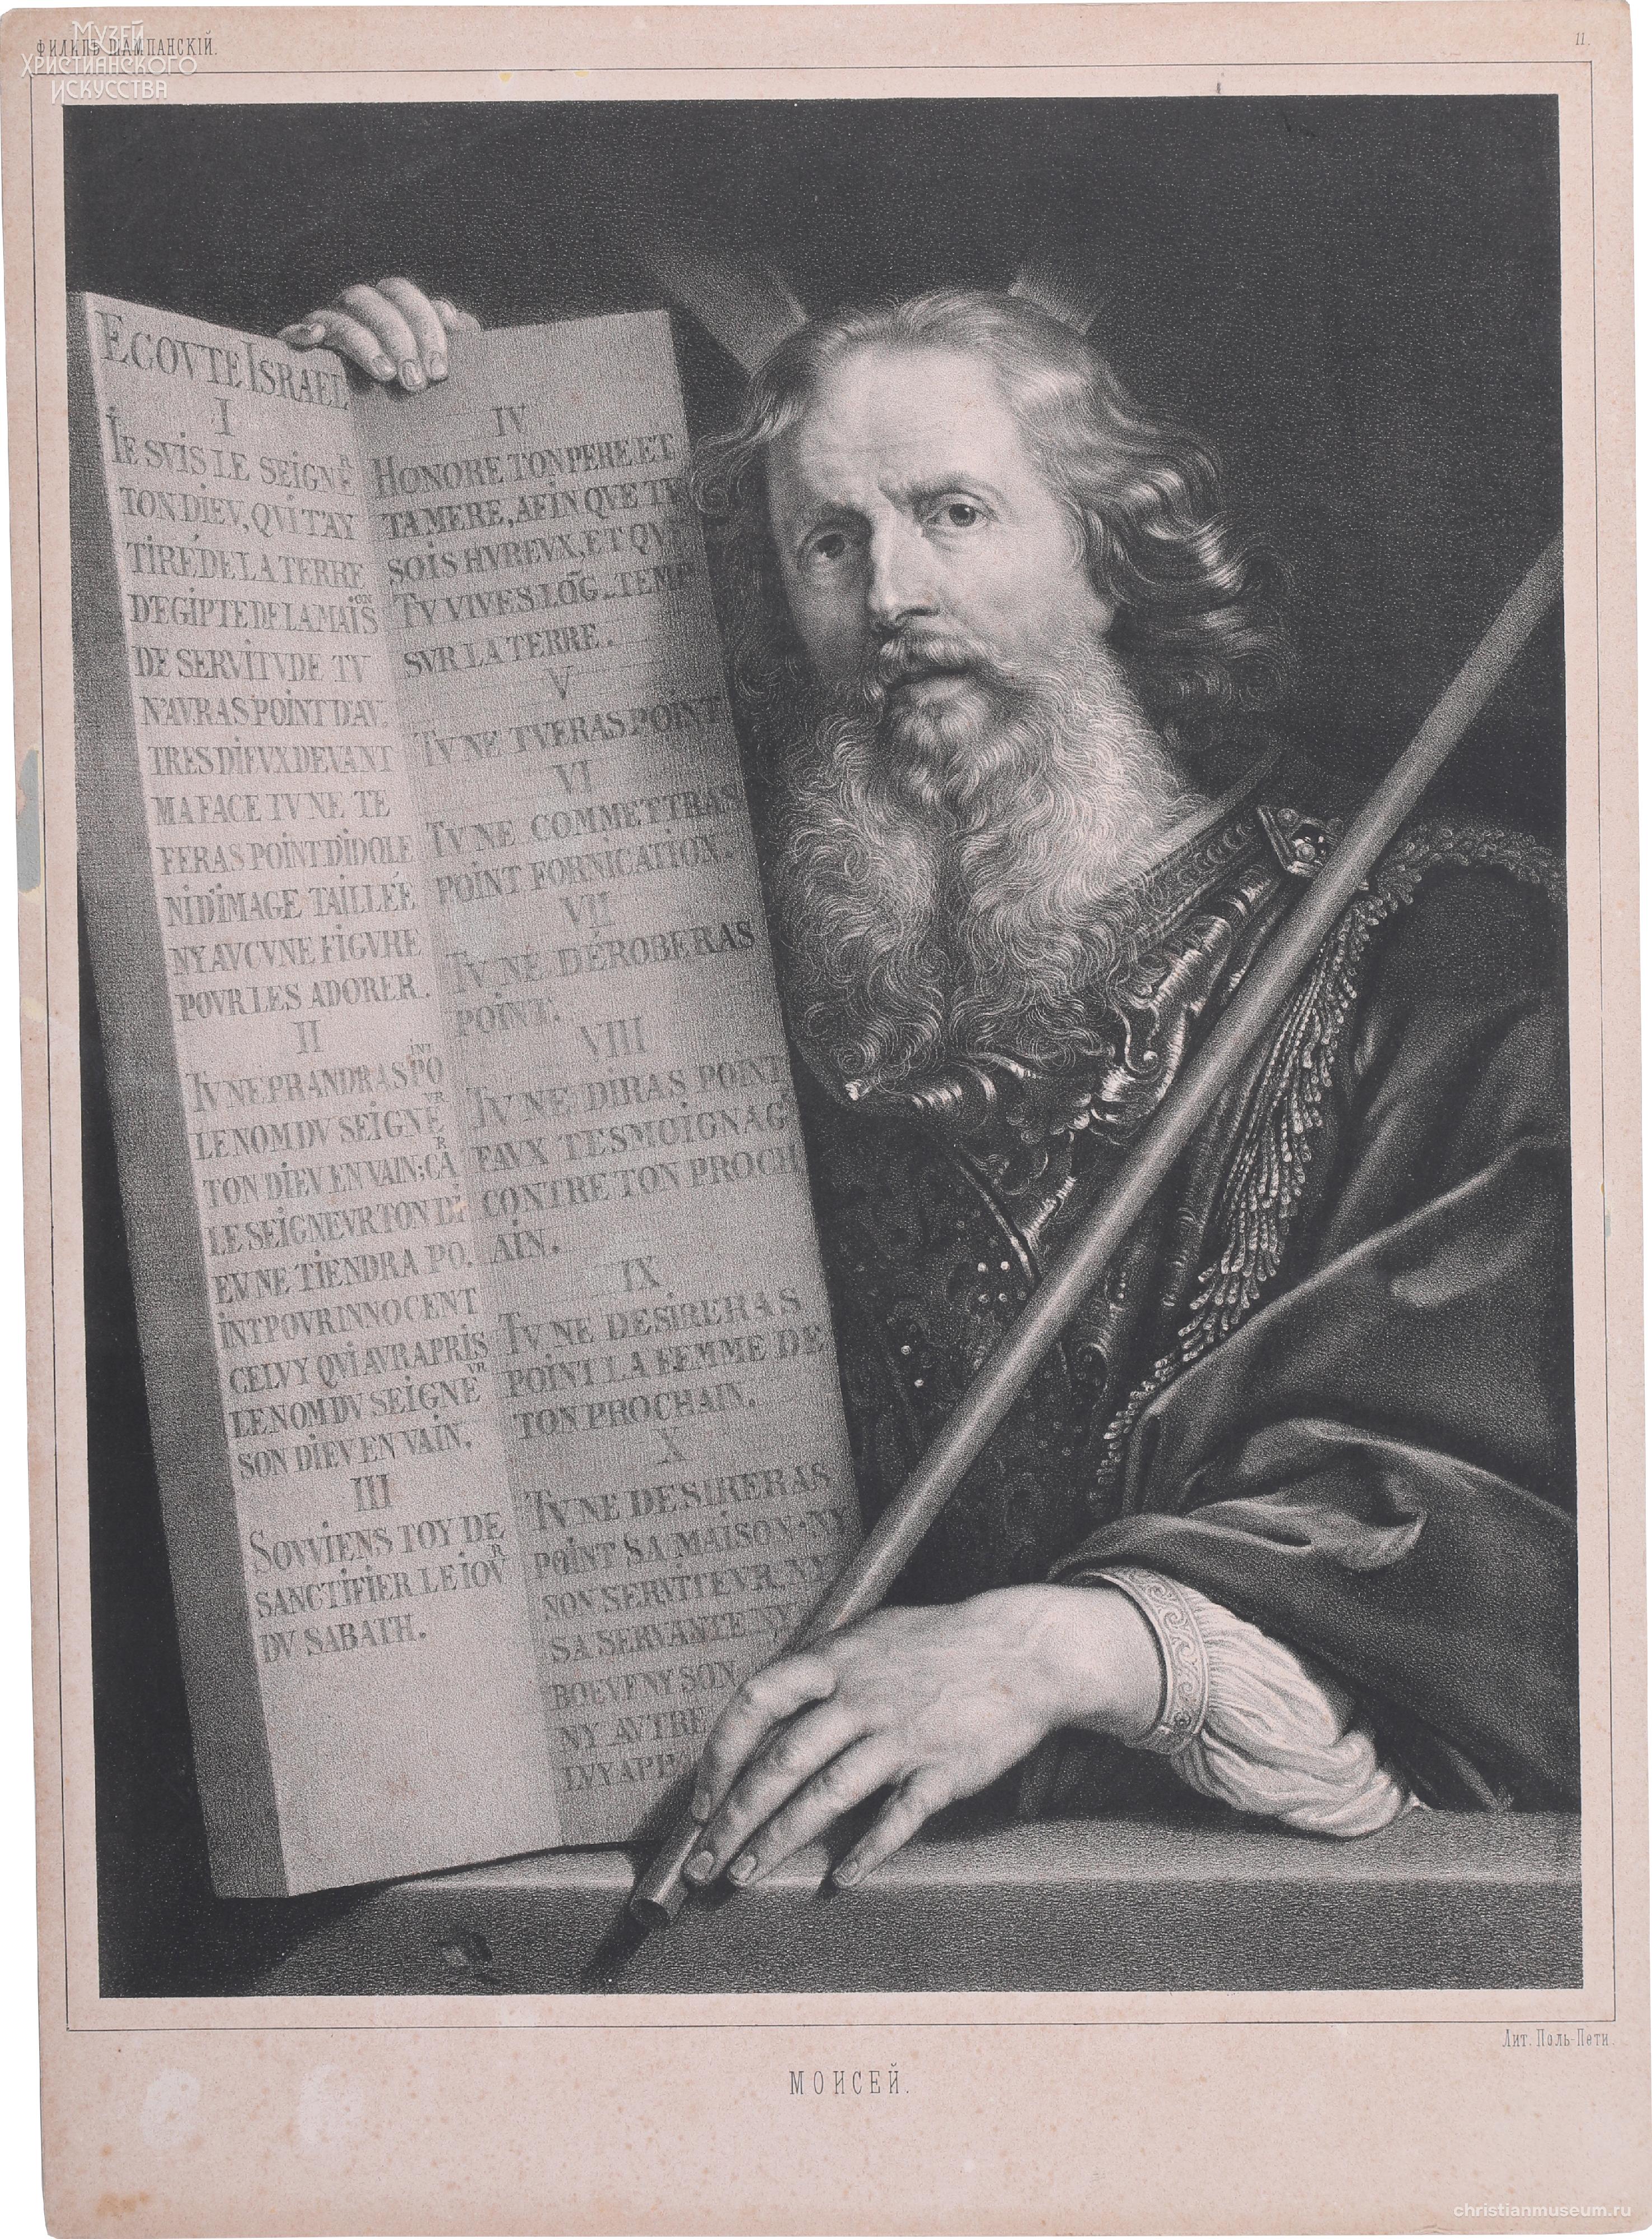 Музей
Христианского
Искусства
ФИЛИПЪ ШАМПАНСКIЙ.
11.
ECOVTE ISRAEL
I
IE SVIS LE SEIGNE^R
TON DIEV, QVI T'AY
TIRÉ DE LA TERRE
D'EGIPTE DE LA MAIS^ON
DE SERVITVDE TV
N'AVRAS POINT D'AV.
TRES DIEVX DEVANT
MA FACE TV NE TE
FERAS POINT D'IDOLE
NI D'IMAGE TAILLÉE
NY AVCVNE FIGVRE
POVR LES ADORER.
II
TV NE PRANDRAS PO^INT
LE NOM DV SEIGNE^VR
TON DIEV EN VAIN; CA^R
LE SEIGNEVR TON DI
EV NE TIENDRA PO.
INT POVR INNOCENT
CELVY QVI AVRA PRIS
LE NOM DV SEIGNE^VR
SON DIEV EN VAIN.
III
SOVVIENS TOY DE
SANCTIFIER LE IOV^R
DV SABATH.
IV
HONORE TON PERE ET
TA MERE, AFIN QVE TV
SOIS HVREVX, ET QVE
TV VIVES LÕG_TEMP
SVR LA TERRE.
V
TV NE TVERAS POINT
VI
TV NE COMMETTRAS
POINT FORNICATION.
VII
TV NE DÉROBERAS
POINT.
VIII
TV NE DIRAS POINT
FAVX TESMOIGNAGE
CONTRE TON PROCH
AIN.
IX
TV NE DESIRERAS
POINT LA FEMME DE
TON PROCHAIN.
X
TV NE DESIRERAS
POINT SA MAISON. NY
SON SERVITEVR, NY
SA SERVANTE NY
BOEVF NY SON
NY AVTRE
LVY AP
Лит. Поль-Пети.
МОИСЕЙ.
christianmuseum.ru